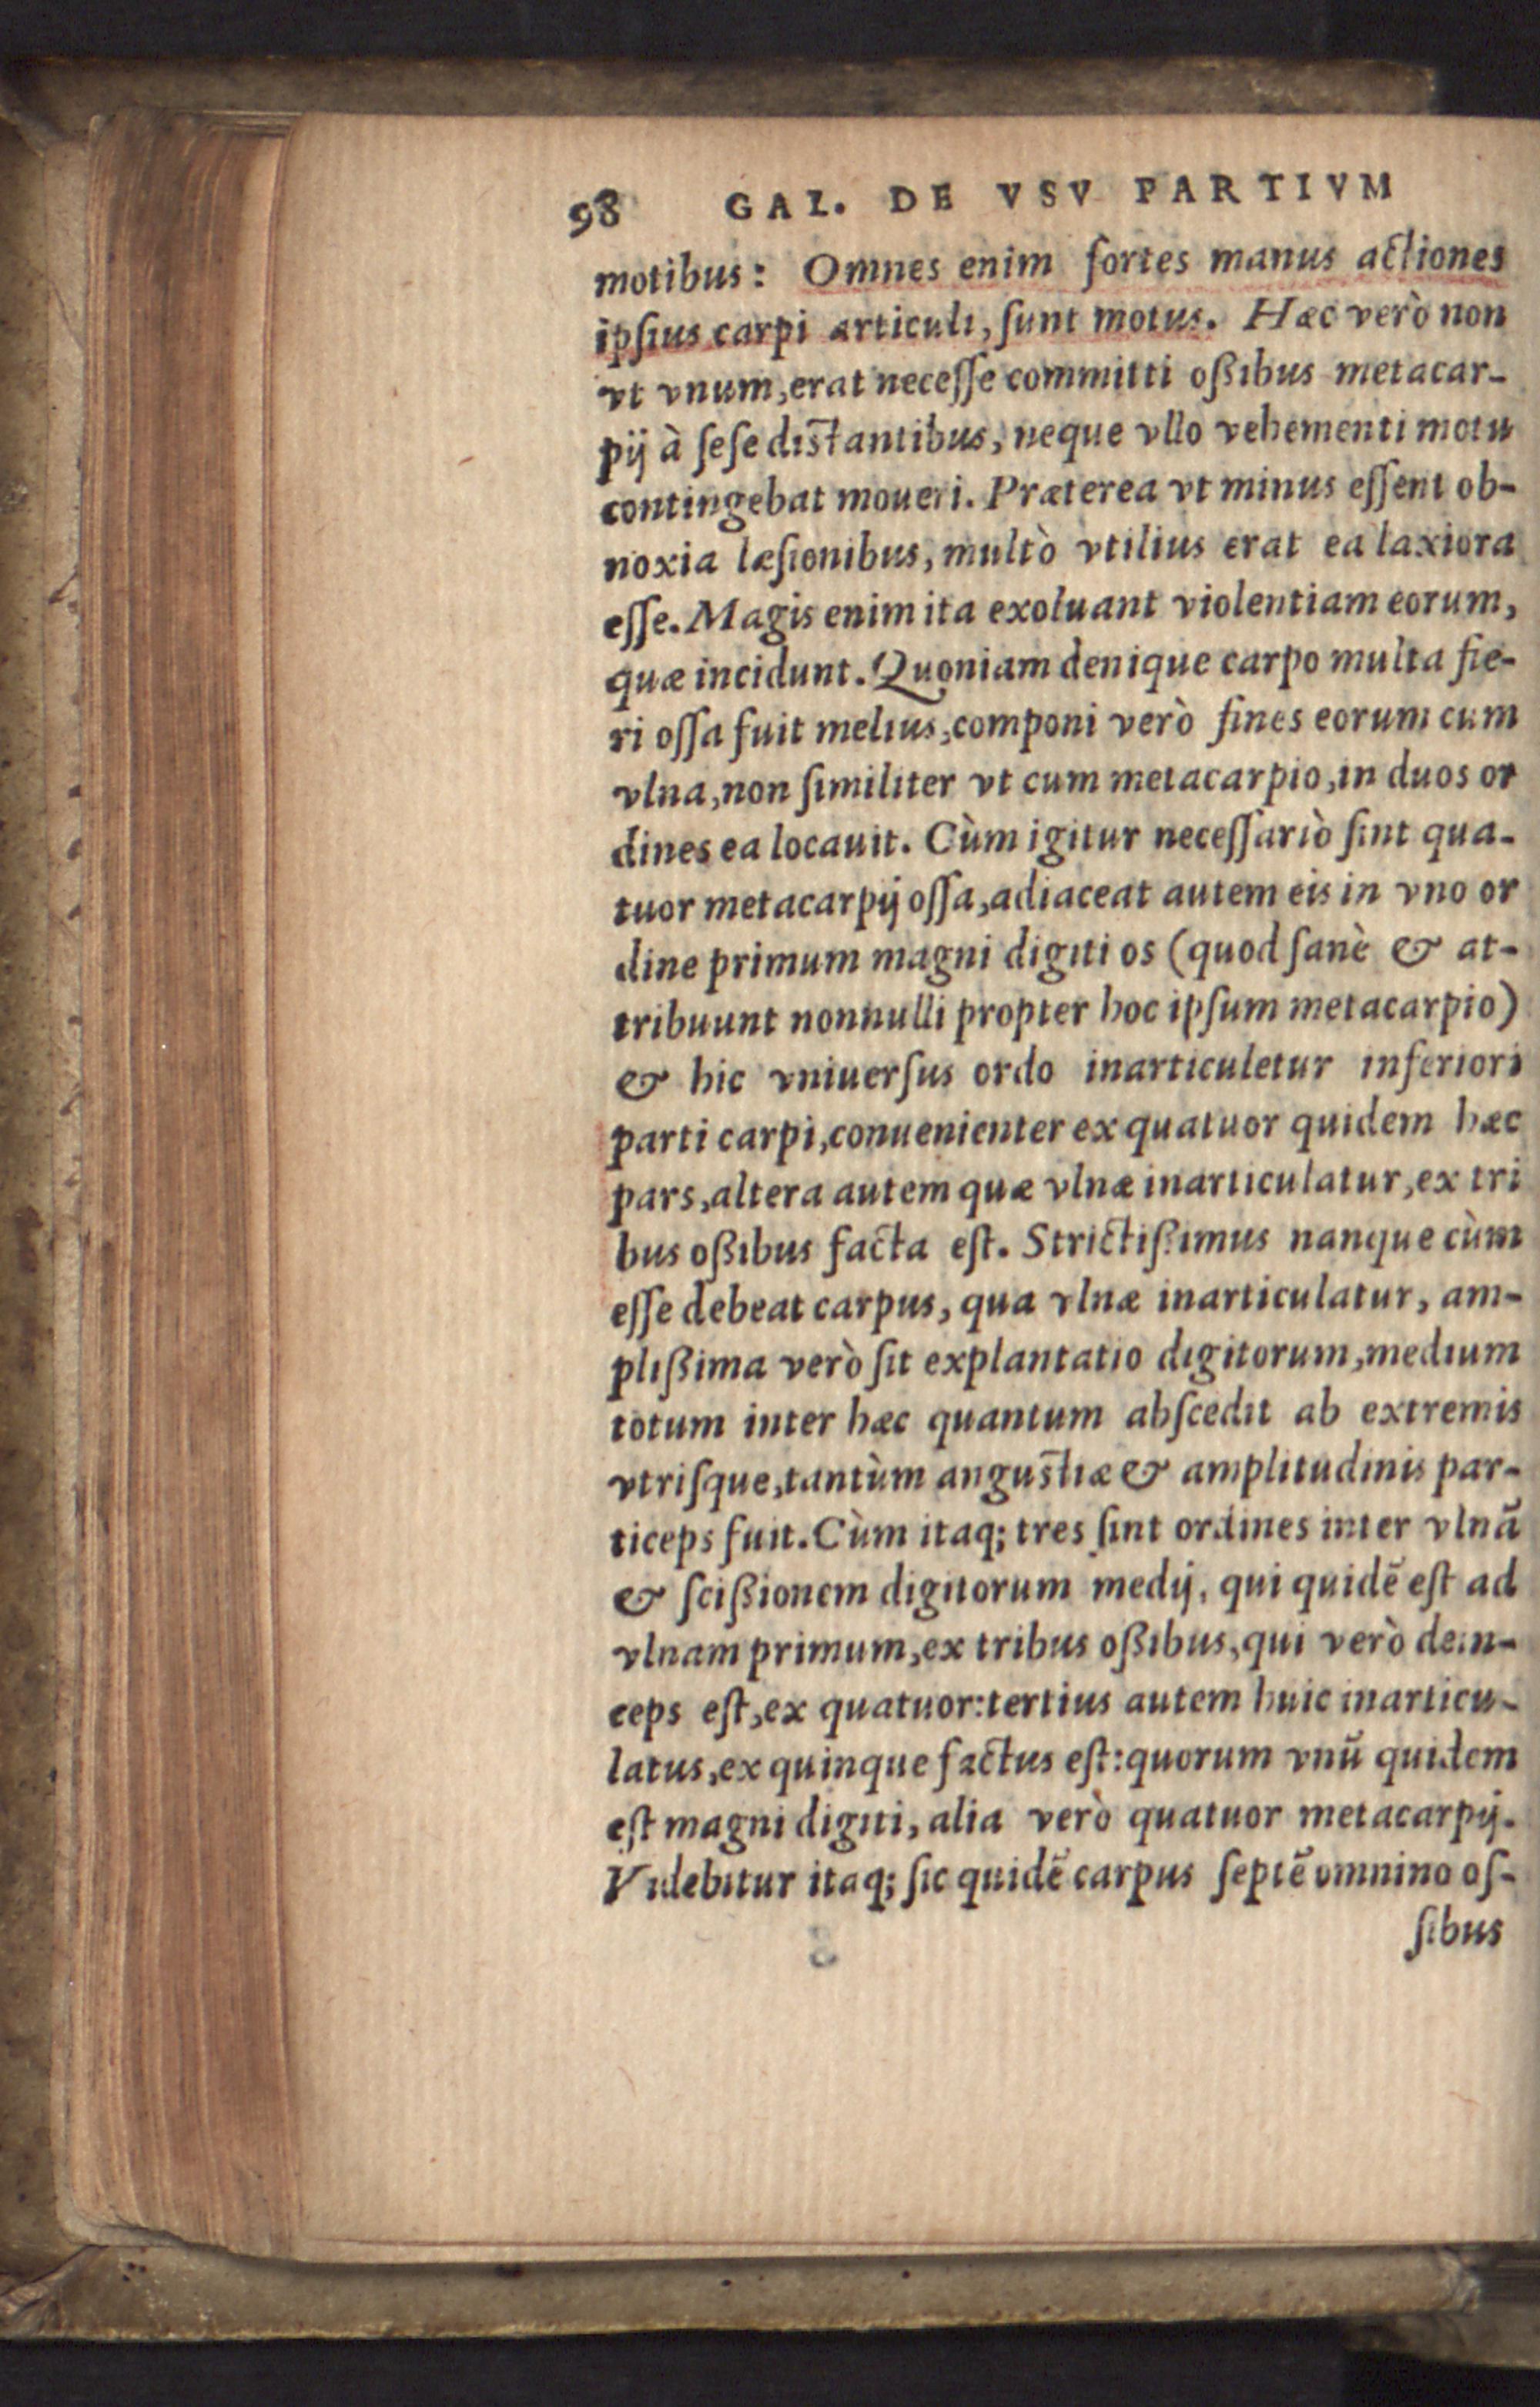 98 GAL. DE VSV PARTIVM
motibus: Omnes enim fortes manus actiones
ipſius carpi articuli, ſunt motus. Hæc verò non
vt vnum, erat neceſſe committi oßibus metacar-
pij à ſeſe distantibus, neque vllo vehementi motu
contingebat moueri. Præterea vt minus eſſent ob-
noxia læſionibus, multò vtilius erat ea laxiora
eſſe. Magis enim ita exoluant violentiam eorum,
quæ incidunt. Quoniam denique carpo multa fie-
ri oſſa fuit melius, componi verò fines eorum cum
vlna, non ſimiliter vt cum metacarpio, in duos or
dines ea locauit. Cùm igitur neceſſariò ſint qua-
tuor metacarpij oſſa, adiaceat autem eis in vno or
dine primum magni digiti os (quod ſanè & at-
tribuunt nonnulli propter hoc ipſum metacarpio)
& hic vniuerſus ordo inarticuletur inferiori
parti carpi, conuenienter ex quatuor quidem hæc
pars, altera autem quæ vlnæ inarticulatur, ex tri
bus oßibus facta eſt. Strictißimus nanque cùm
eſſe debeat carpus, qua vlnæ inarticulatur, am-
plißima verò ſit explantatio digitorum, medium
totum inter hæc quantum abſcedit ab extremis
vtriſque, tantùm angustiæ & amplitudinis par-
ticeps fuit. Cùm itaq; tres ſint ordines inter vlnā
& ſcißionem digitorum medij, qui quidē eſt ad
vlnam primum, ex tribus oßibus, qui verò dein-
ceps eſt, ex quatuor: tertius autem huic inarticu-
latus, ex quinque factus eſt: quorum vnū quidem
eſt magni digiti, alia verò quatuor metacarpij.
Videbitur itaq; ſic quidē carpus ſeptē omnino oſ-
ſibus